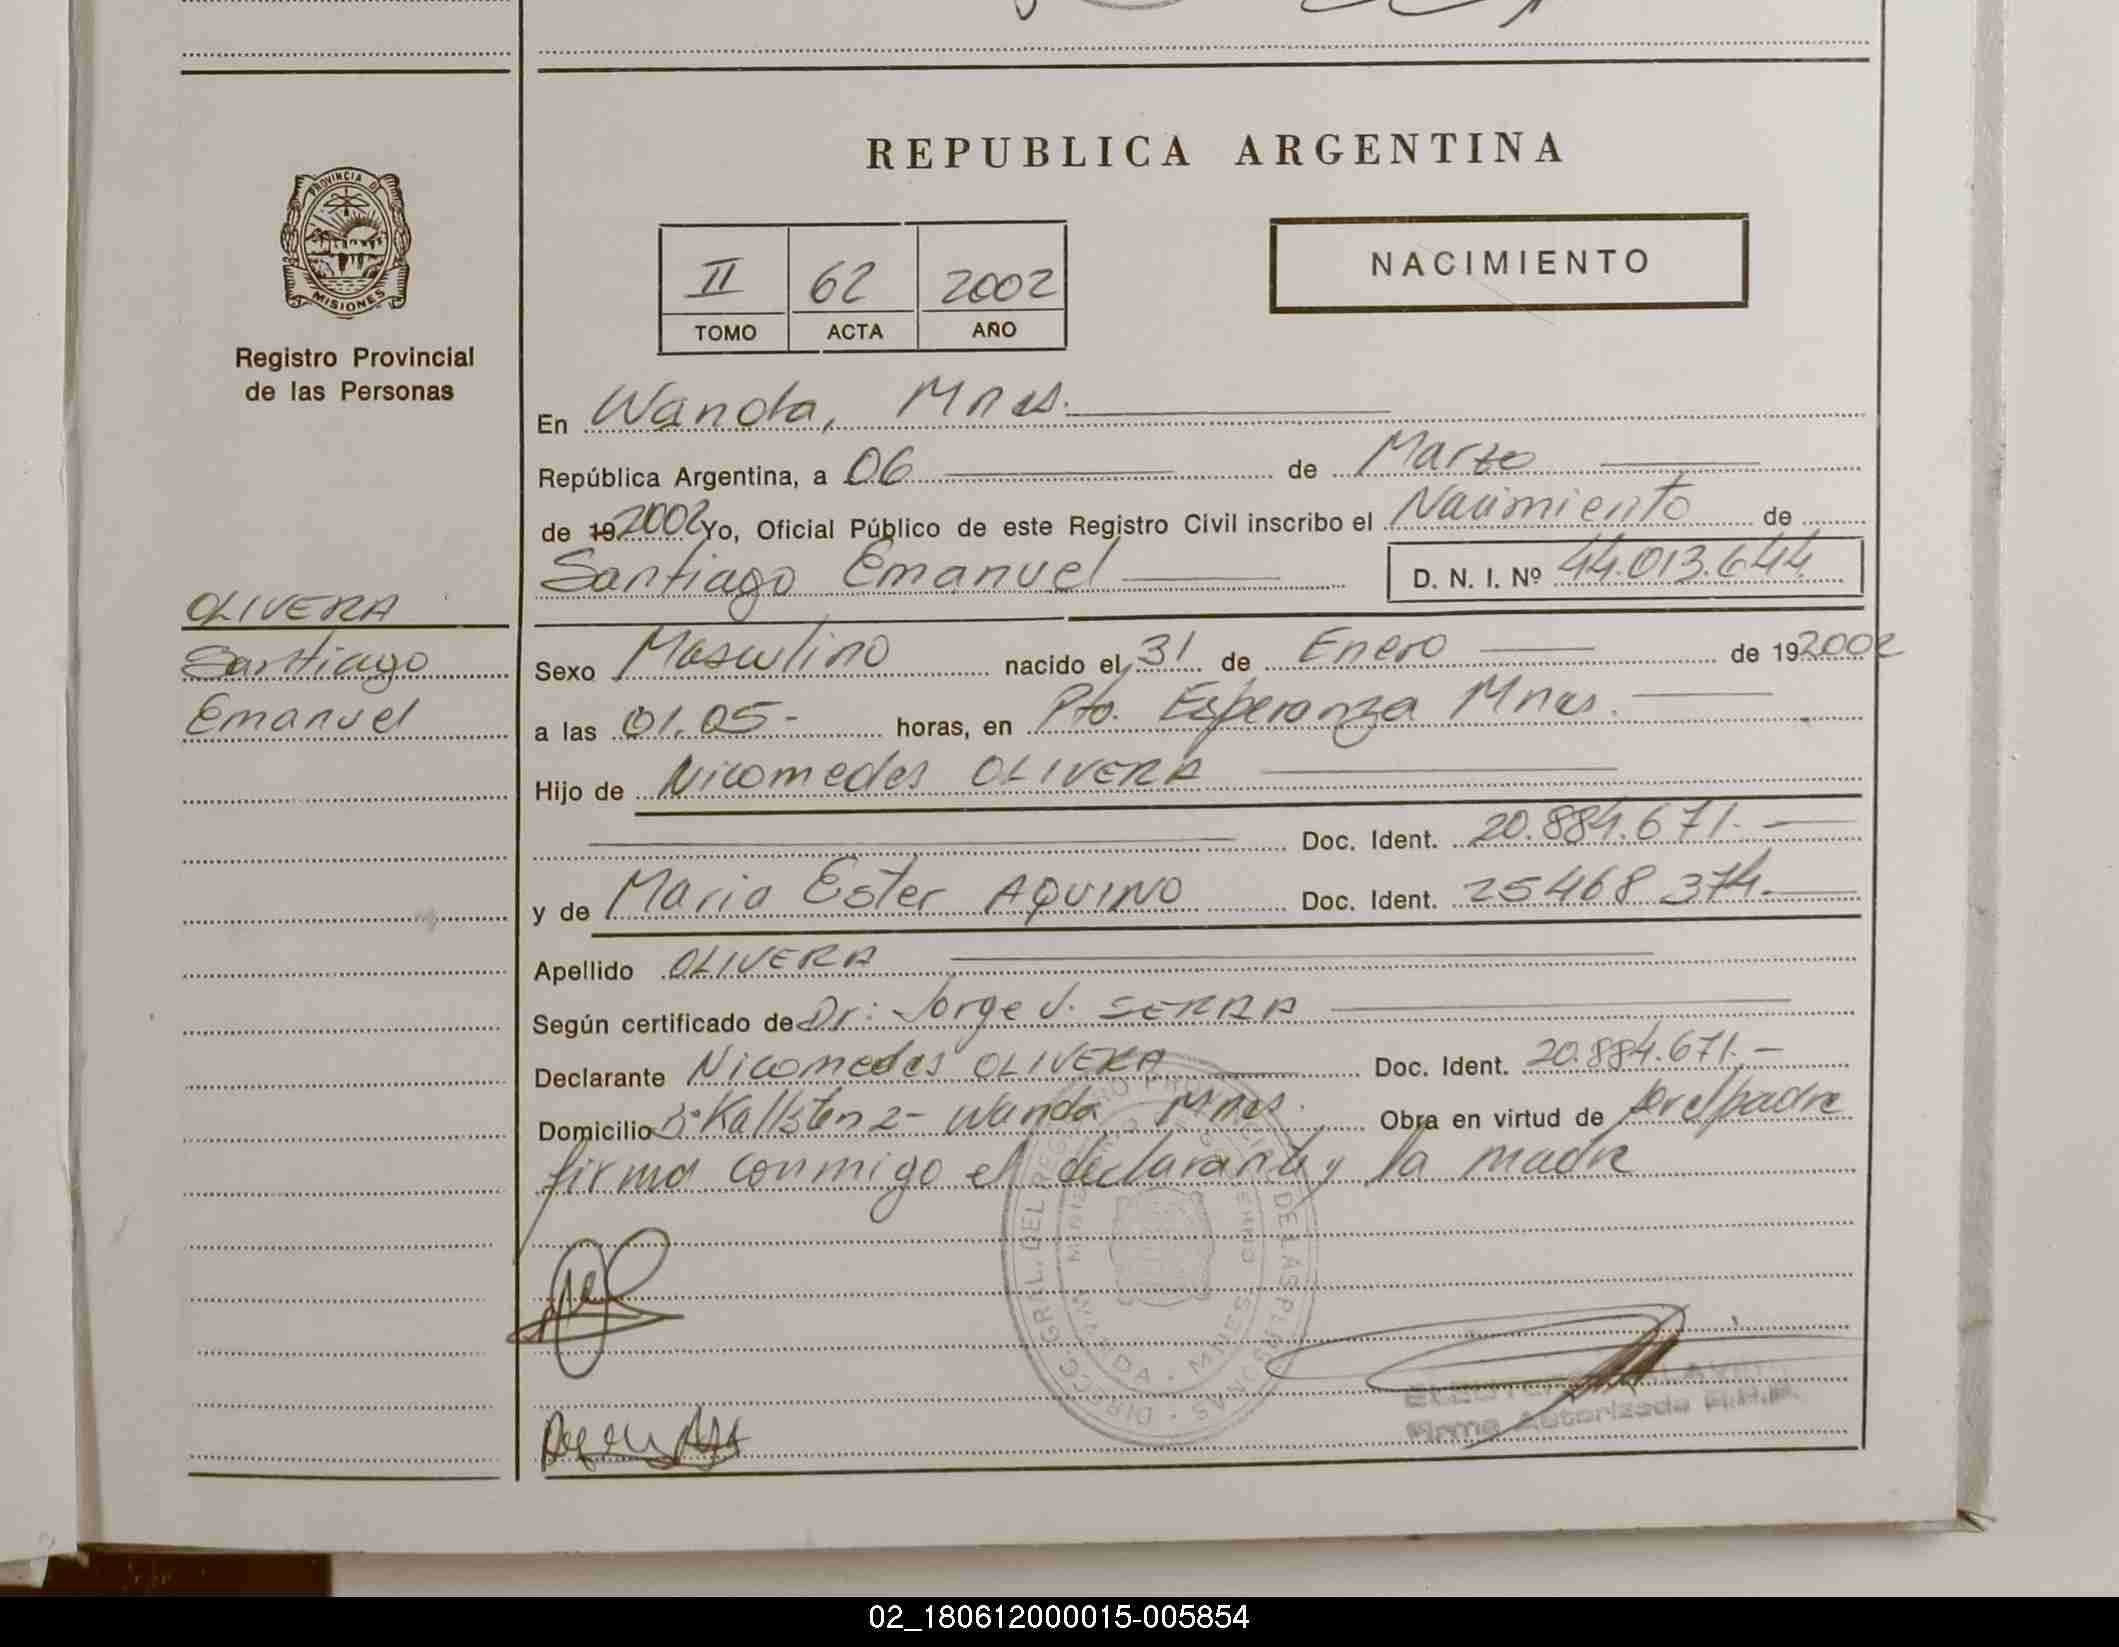 REPUBLICA ARGENTINA
PROVINCIA DE
MISIONES
Registro Provincial
de las Personas
II 62 2002
TOMO ACTA AÑO
NACIMIENTO
En Wanda, Mnes.
República Argentina, a 06 de Marzo
de 19 2002 Yo, Oficial Público de este Registro Civil inscribo el Nacimiento de
Santiago Emanuel D. N. I. Nº 44.013.644
OLIVERA
Santiago
Emanuel
Sexo Masculino nacido el 31 de Enero de 19 2002
a las 01.05- horas, en Pto. Esperanza Mnes.
Hijo de Nicomedes OLIVERA
Doc. Ident. 20.884.671.-
y de Maria Ester AQUINO Doc. Ident. 25468 374.-
Apellido OLIVERA
Según certificado de Dr: Jorge J. SERRA
Declarante Nicomedes OLIVERA Doc. Ident. 20.884.671.-
Domicilio Bº Kallsten 2- Wanda Mnes. Obra en virtud de ser el padre
firma conmigo el declarante y la madre
DIRECC. GRAL. DEL REGISTRO PROVINCIAL DE LAS PERSONAS
WANDA - MNES
Firma Autorizada R.P.P.
02_180612000015-005854